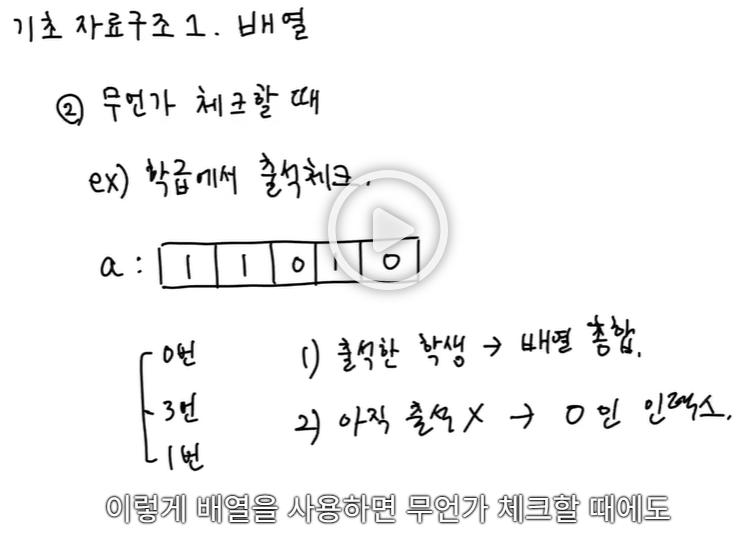 기초 자료구조 1. 배열
② 무언가 체크할 때
ex) 학급에서 출석체크.
a : 1 1 0 1 0
0번
3번
1번
1) 출석한 학생 → 배열 총합.
2) 아직 출석 X → 0인 인덱스.
이렇게 배열을 사용하면 무언가 체크할 때에도